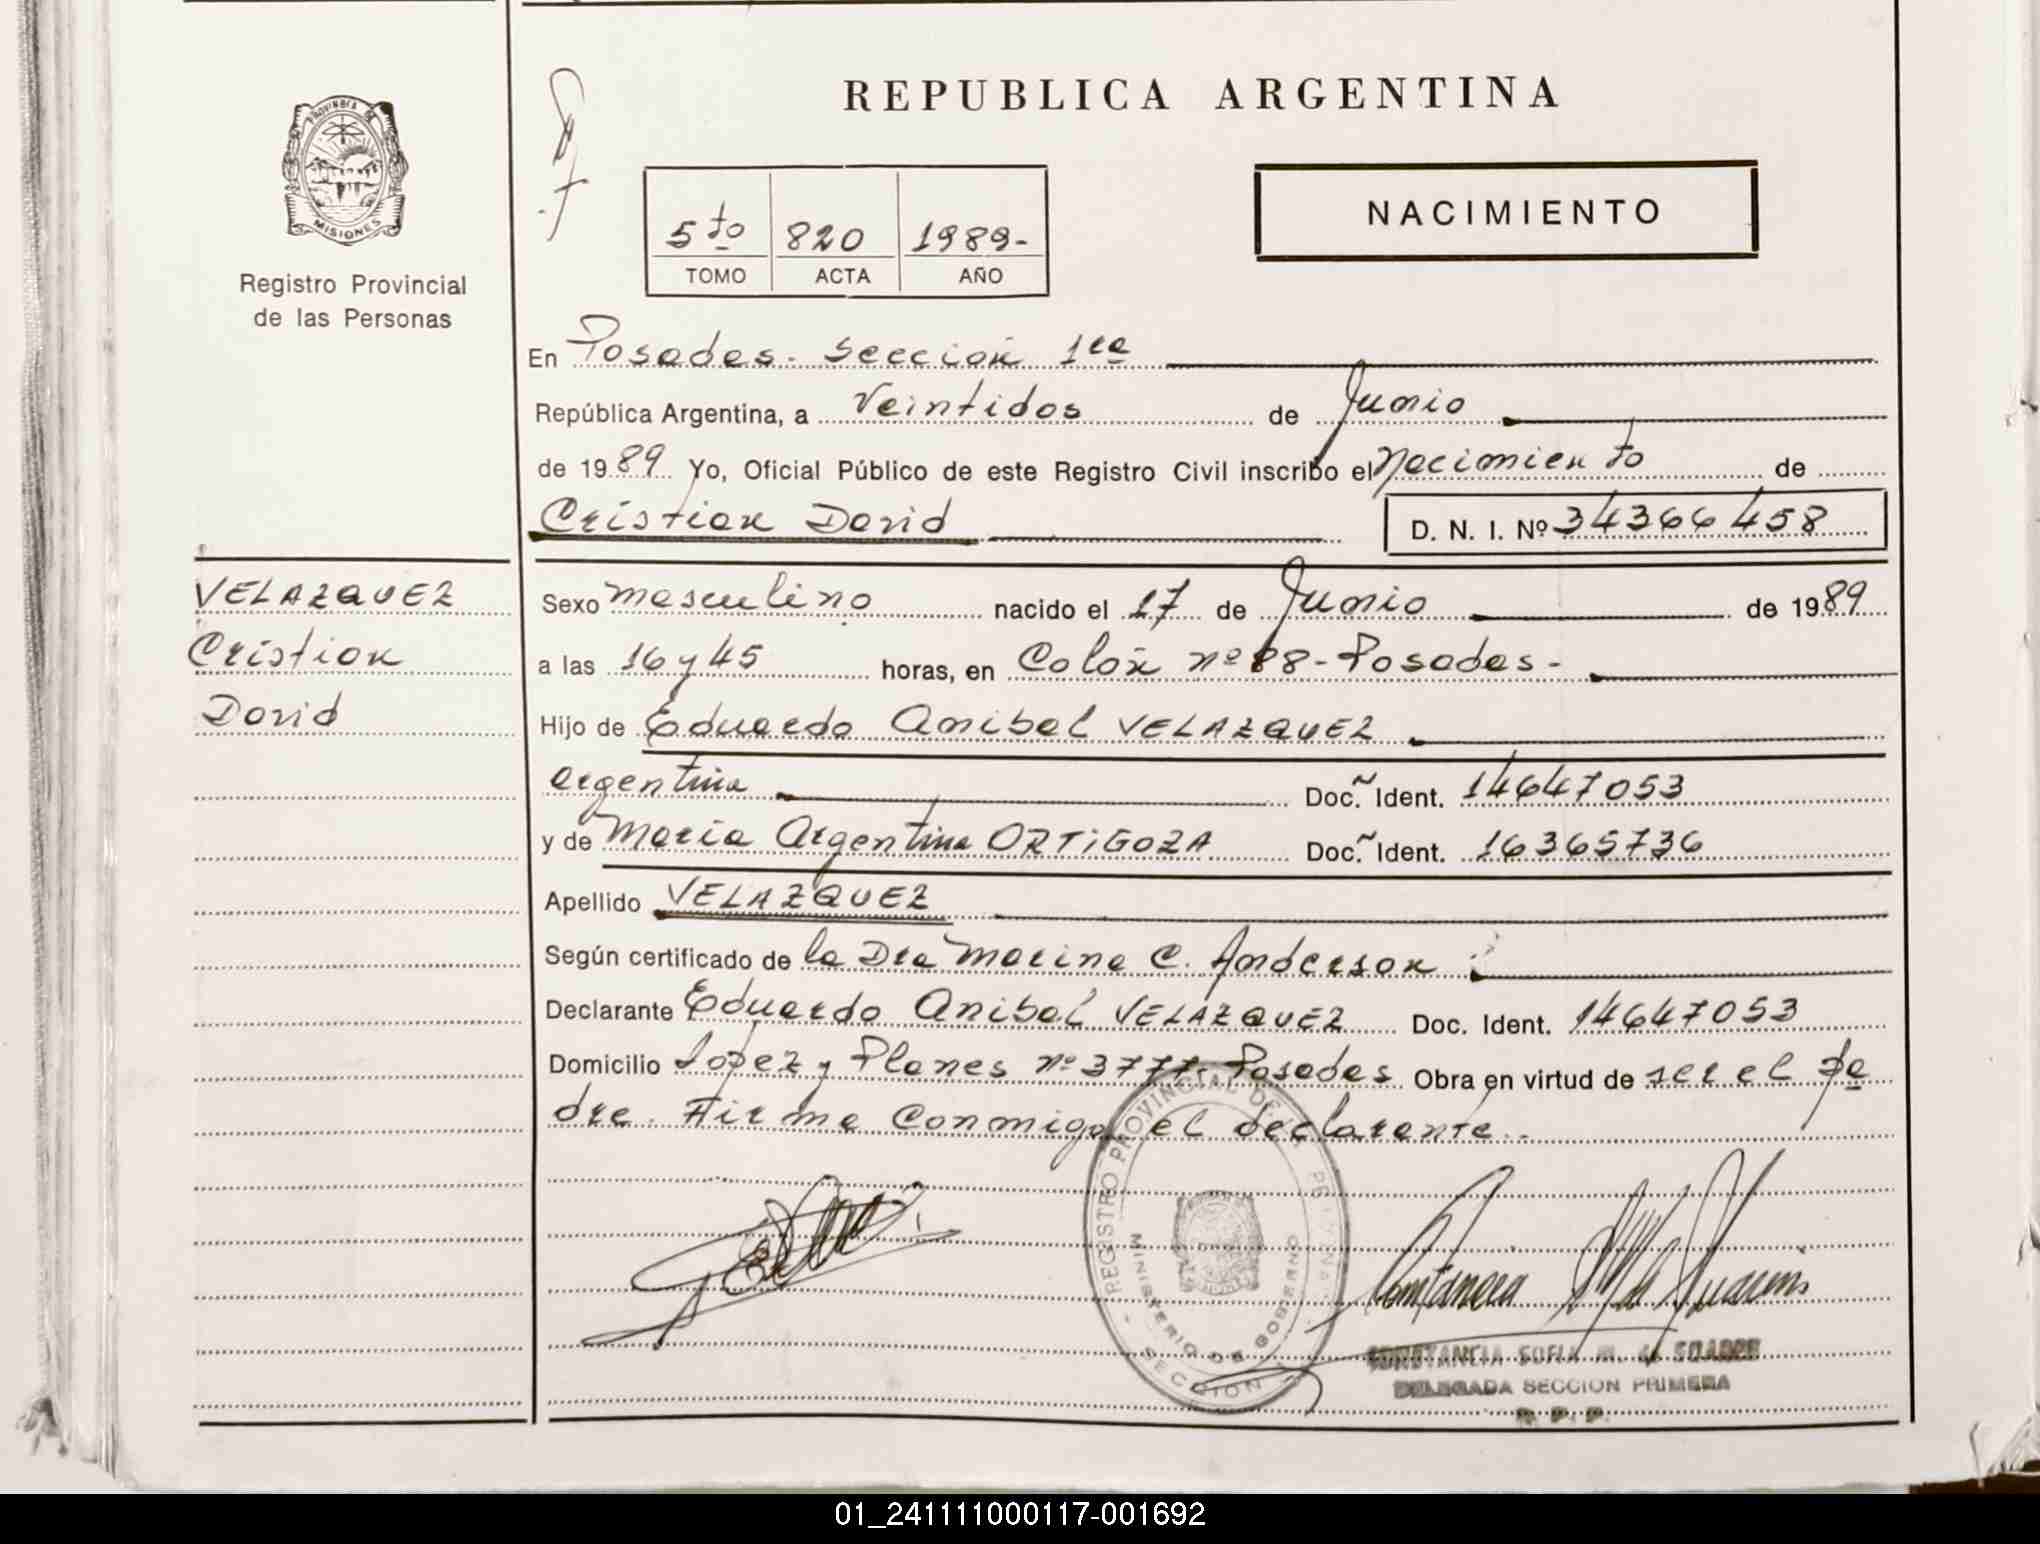 REPUBLICA ARGENTINA
PROVINCIA DE
MISIONES
Registro Provincial
de las Personas
5to 820 1989-
TOMO ACTA AÑO
NACIMIENTO
En Posadas. Sección 1ra
República Argentina, a Veintidos de Junio
de 1989 Yo, Oficial Público de este Registro Civil inscribo el Nacimiento de
Cristian David D. N. I. Nº 34366458
VELAZQUEZ
Cristian
David
Sexo masculino nacido el 17 de Junio de 1989
a las 16 y 45 horas, en Colón nº 88 - Posadas -
Hijo de Eduardo Anibal VELAZQUEZ
argentina Doc. Ident. 14647053
y de María Argentina ORTIGOZA Doc. Ident. 16365736
Apellido VELAZQUEZ
Según certificado de la Dra Marina C. Anderson
Declarante Eduardo Anibal VELAZQUEZ Doc. Ident. 14647053
Domicilio López y Planes nº 3777- Posadas Obra en virtud de ser el pa
dre. Firma Conmigo el declarante..
REGISTRO PROVINCIAL DE
MINISTERIO DE GOBIERNO
SECCION
CONSTANCIA SOFIA M. de SUAREZ
DELEGADA SECCION PRIMERA
R. P. P.
01_241111000117-001692